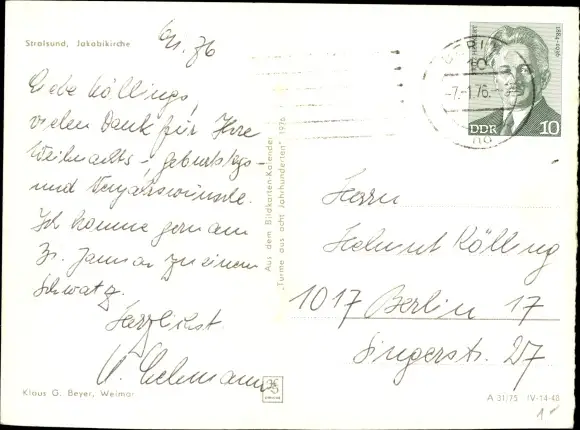 Stralsund, Jakobikirche
6.1.76
Liebe Köllings,
vielen Dank für Ihre
Weihnachts-, Geburtstags-
und Neujahrswünsche.
Ich komme gern am
Januar zu einem
Schwatz.
Herzlichst
Klaus G. Beyer, Weimar
Aus dem Bildkarten-Kalender
„Türme aus acht Jahrhunderten" 1976
BERLIN
-7.-1.76.-
DDR 10
Herrn
Helmut Kölling
1017 Berlin 17
Singerstr. 27
A 31/75 IV-14-48